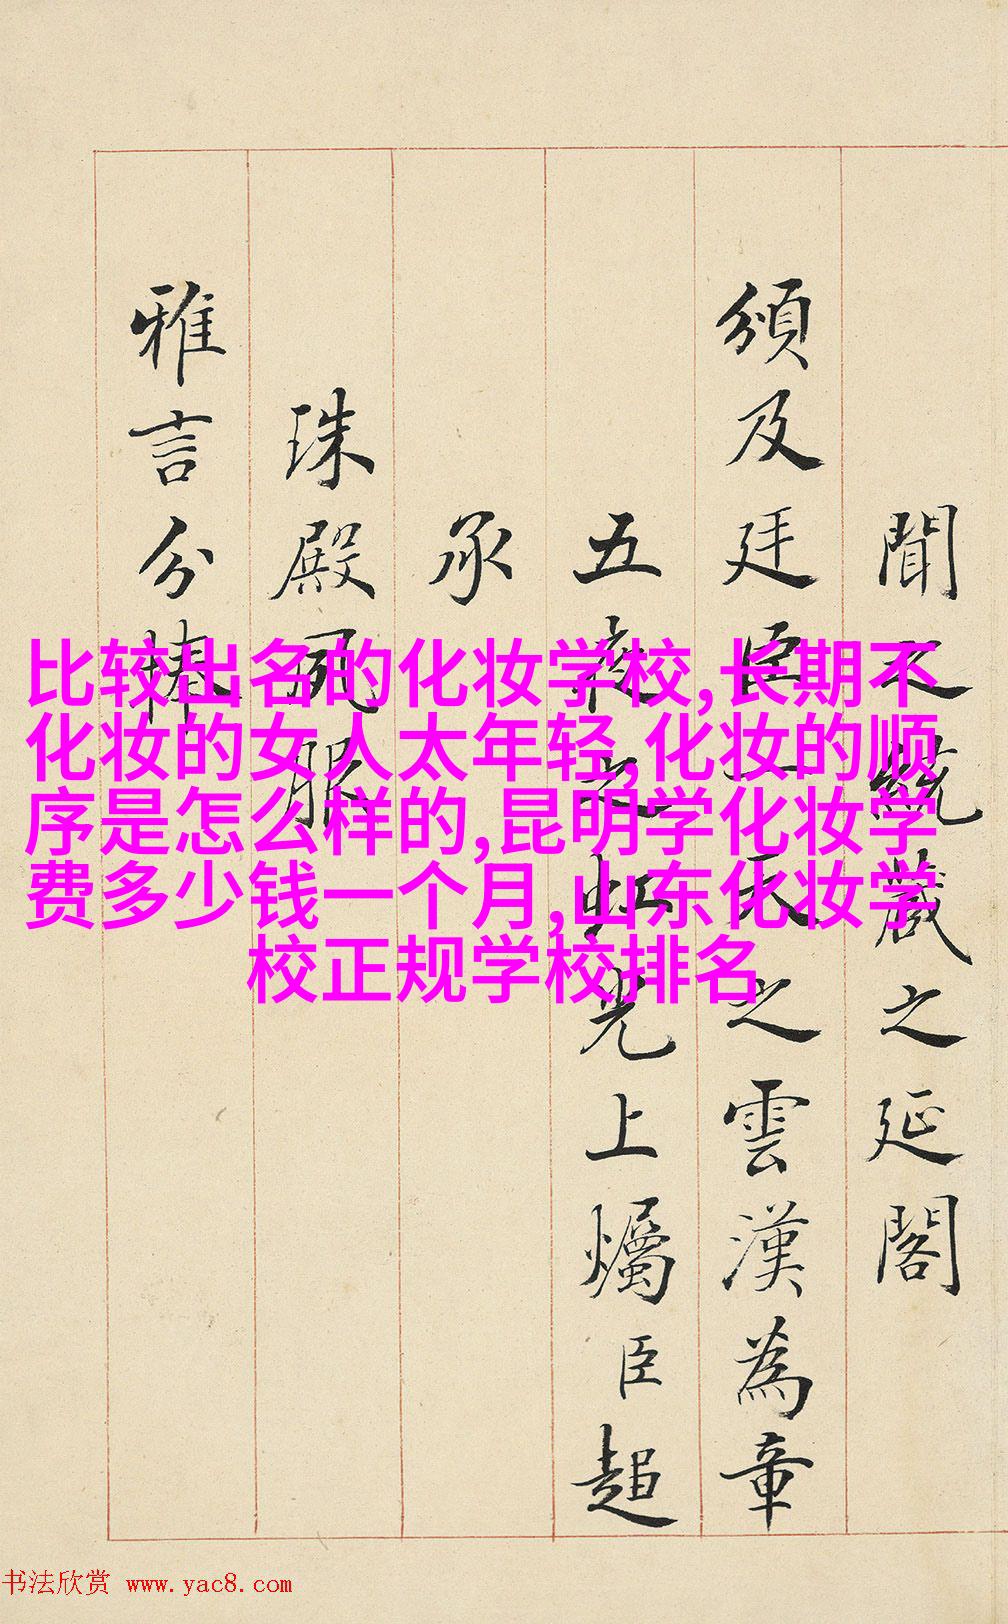 聞之藏之延閣
頒及廷臣一天之雲漢為章
五夜之虹光上爥臣超
承
珠殿夙服
雅言分捧
比较出名的化妆学校,长期不
化妆的女人太年轻,化妆的顺
序是怎么样的,昆明学化妆学
费多少钱一个月,山东化妆学
校正规学校排名
书法欣赏 www.yac8.com